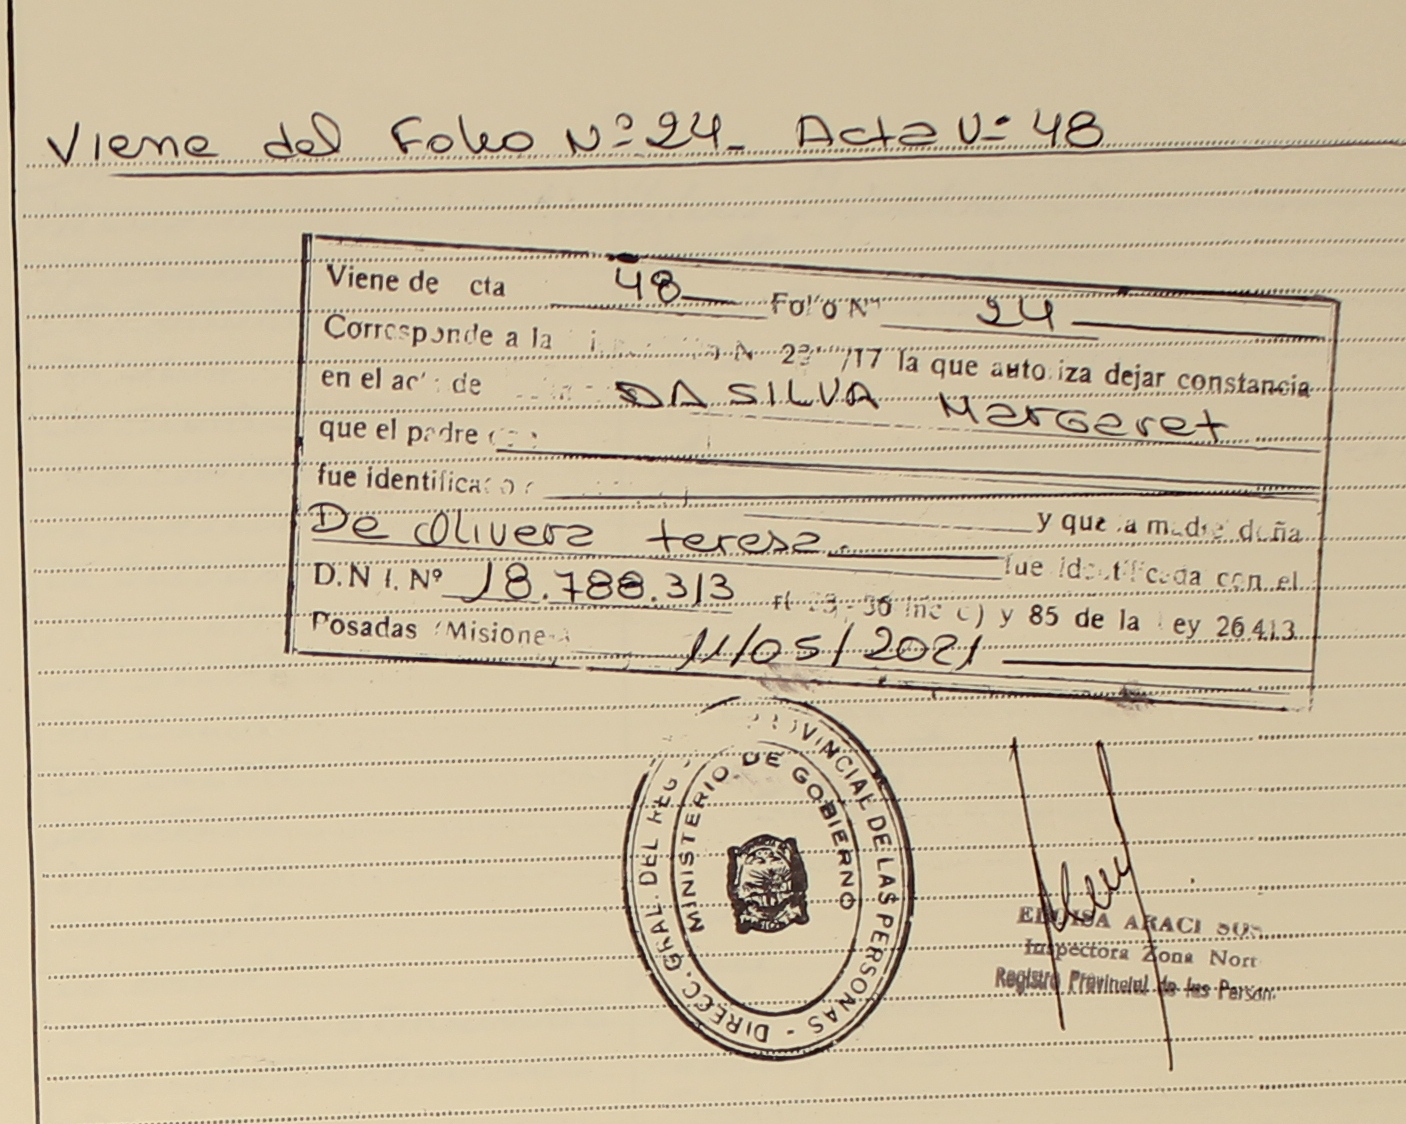 Viene del Folio Nº 24_ Acta Nº 48
Viene de cta 48 Folio Nº 24
Corresponde a la /17 la que autoriza dejar constancia
en el ac de DA SILVA Margaret
que el padre
fue identificado
De Olivera teresa. y que la madre doña
fue identificada con el
D.N.I. Nº 18.788.313 36 Inc c) y 85 de la Ley 26413
Posadas (Misiones 11/05/2021
DIRECC. GRAL. DEL REG PROVINCIAL DE LAS PERSONAS -
MINISTERIO DE GOBIERNO
ELOISA ARACI
Inspectora Zona Nort
Registro Provincial de las Person